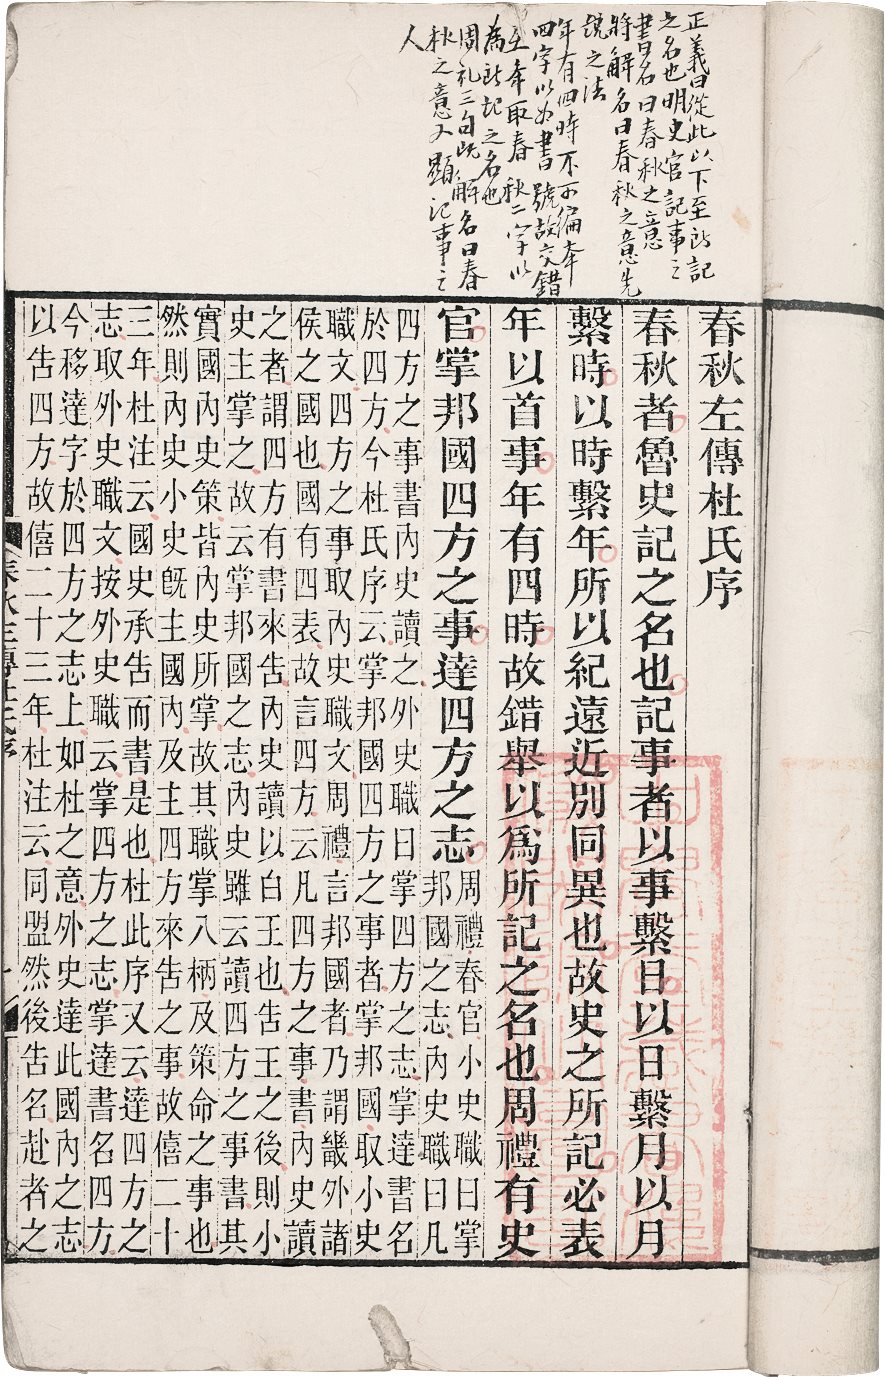 正義曰從此以下至所記
之名也明史官記事之
書名曰春秋之意
將解名曰春秋之意先
說之法
年有四時不可徧舉
四字以为書號故交錯
互舉取春秋二字以
為所記之名也
周礼三句既解名曰春
秋之意又顯記事之
人
春秋左傳杜氏序
春秋者魯史記之名也記事者以事繫日以日繫月以月
繫時以時繫年所以紀遠近別同異也故史之所記必表
年以首事年有四時故錯舉以爲所記之名也周禮有史
官掌邦國四方之事達四方之志
周禮春官小史職曰掌
邦國之志內史職曰凡
四方之事書內史讀之外史職曰掌四方之志掌達書名
於四方今杜氏序云掌邦國四方之事者掌邦國取小史
職文四方之事取內史職文周禮言邦國者乃謂畿外諸
侯之國也國有四表故言四方云凡四方之事書內史讀
之者謂四方有書來告內史讀以白王也告王之後則小
史主掌之故云掌邦國之志內史雖云讀四方之事書其
實國內史策皆內史所掌故其職掌八柄及策命之事也
然則內史小史旣主國內及主四方來告之事故僖二十
三年杜注云國史承告而書是也杜此序又云達四方之
志取外史職文按外史職云掌四方之志掌達書名四方
今移達字於四方之志上如杜之意外史達此國內之志
以告四方故僖二十三年杜注云同盟然後告名赴者之
春秋左傳杜氏序